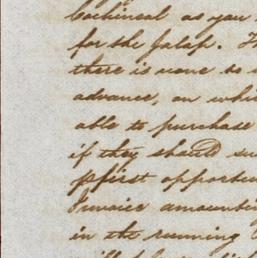 Cochineal as you
for the Jalap. Th
there is none to
advance, on whi
able to purchase
if they should su
first opportun
Invoice amounti
in the running